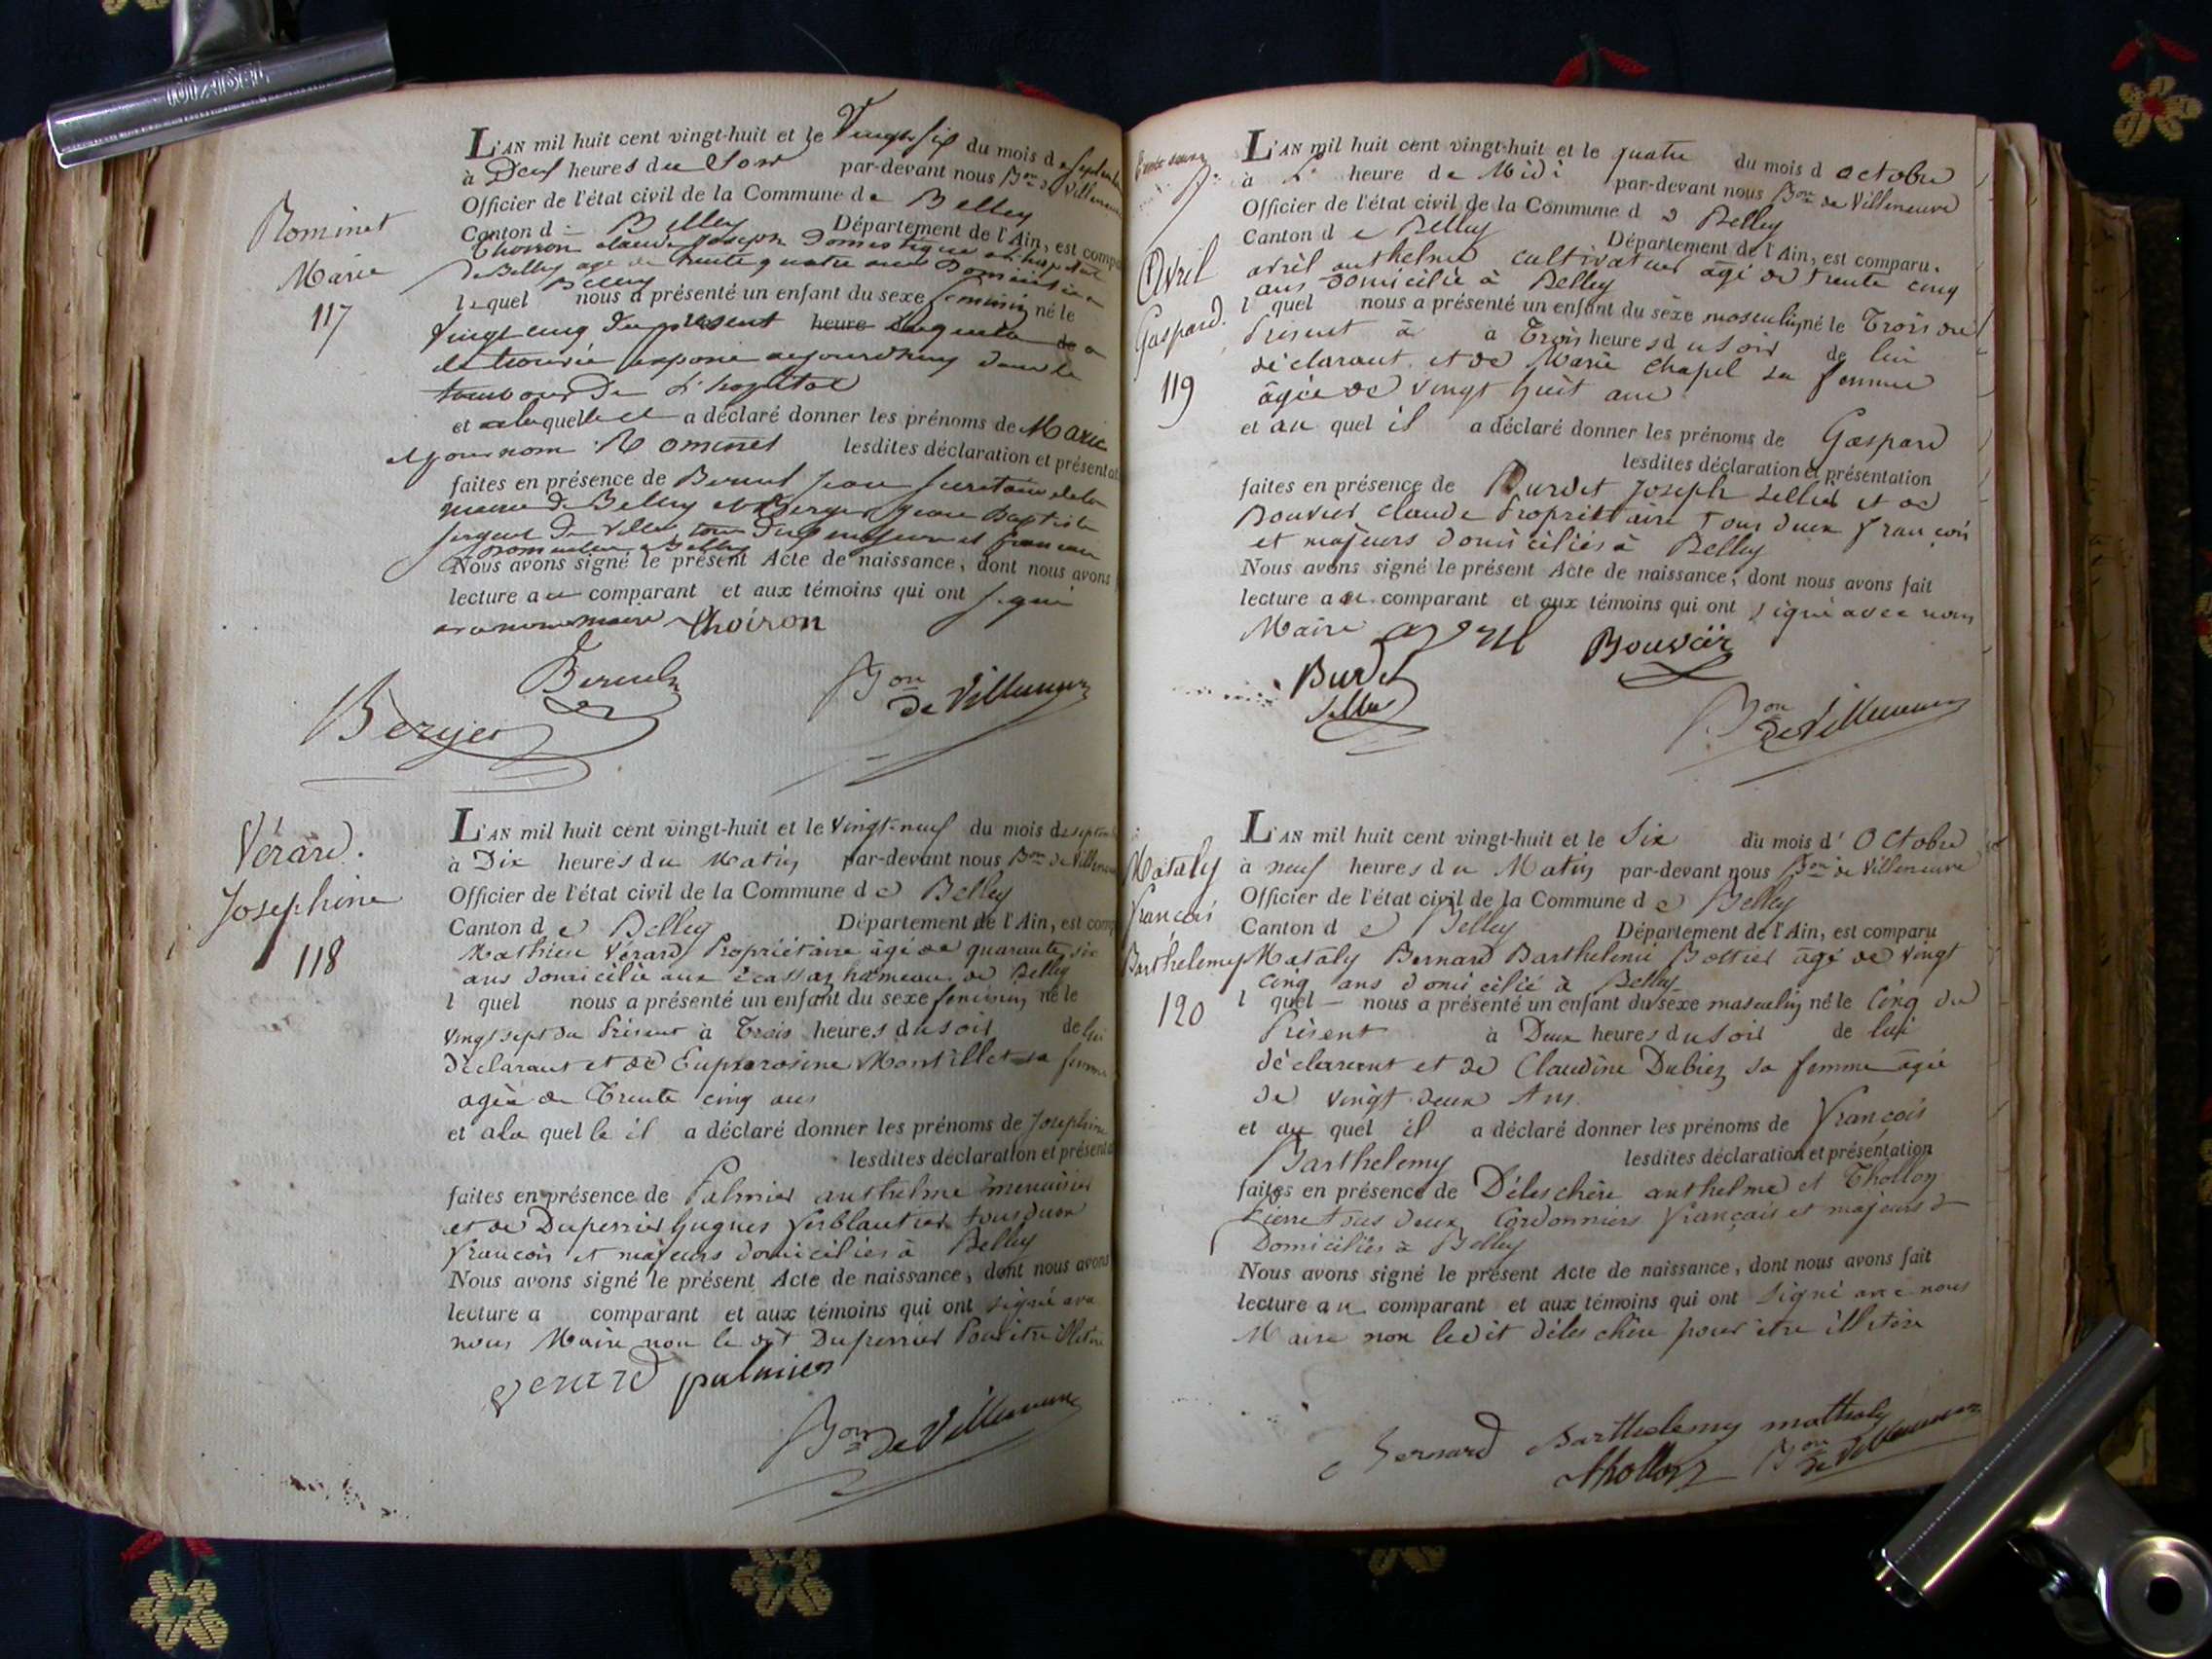 Rominet
Marie
117
L'AN mil huit cent vingt-huit et le Vingt six du mois de septembre
à Deux heures du Soir par-devant nous Bon de Villeneuve
Officier de l'état civil de la Commune de Belley
Canton de Belley Département de l'Ain, est comp
Thoiron claude joseph Domestique à l'hopital
de Belley agé de trente quatre ans Domicilié a
Belley
lequel nous a présenté un enfant du sexe feminin né le
Vingt cinq du present heure
et trouvée exposé aujourdhuy dans le
tambour De L'hopital
et a laquelle il a déclaré donner les prénoms de Marie
et pour nom Rominet lesdites déclaration et présentat
faites en présence de Jean Secretaire de la
mairie de Belley et Berger jean Baptiste
sergent De Ville tous Deux majeurs et francais
Domicilies a Belley
Nous avons signé le présent Acte de naissance, dont nous avons
lecture au comparant et aux témoins qui ont signé
avec nous maire Thoiron
Berger
Bon de Villeneuve
Vérard.
Josephine
118
L'AN mil huit cent vingt-huit et le Vingt-neuf du mois de septem
à Dix heures du Matin par-devant nous Bon de Villeneuve
Officier de l'état civil de la Commune de Belley
Canton de Belley Département de l'Ain, est comp
Mathieu Vérard Propriétaire âgé de quarante six
ans domicilié aux écassaz hameau de Belley
l quel nous a présenté un enfant du sexe feminin né le
vingt sept du Présent à Trois heures du soir de lui
déclarant et de Euphrosine Montillet sa femme
agée de Trente cinq ans
et a la quelle il a déclaré donner les prénoms de Josephine
lesdites déclaration et présenta
faites en présence de Palmier anthelme menuisier
et de Duperrier hugues ferblantier tous deux
francois et majeurs domiciliés à Belley
Nous avons signé le présent Acte de naissance, dont nous avons
lecture a comparant et aux témoins qui ont signé avec
nous Maire non le dit Duperrier Pour être illetéré
verard palmier
Bon de Villeneuve
Avril
Gaspard.
119
L'AN mil huit cent vingt-huit et le quatre du mois d octobre
à heure de Midi par-devant nous Bon de Villeneuve
Officier de l'état civil de la Commune d e Belley
Canton d e Belley Département de l'Ain, est comparu.
avril anthelme cultivateur âgé de trente cinq
ans domicilié à Belley
l quel nous a présenté un enfant du sexe masculin né le Trois du
Present à à Trois heures du soir de lui
déclarant et de Marie Chapel sa femme
âgée de vingt huit ans
et au quel il a déclaré donner les prénoms de Gaspard
lesdites déclaration et présentation
faites en présence de Burdet Joseph sellier et de
Bouvier claude Proprietaire Tous deux françois
et majeurs domiciliés à Belley
Nous avons signé le présent Acte de naissance, dont nous avons fait
lecture au comparant et aux témoins qui ont signé avec nous
Maire avril Bouvier
Burdet
Sellier
Bon de Villeneuve
Mataly
François
Barthelemy
120
L'AN mil huit cent vingt-huit et le Six du mois d' Octobre
à neuf heures du Matin par-devant nous Bon de Villeneuve
Officier de l'état civil de la Commune d e Belley
Canton d e Belley Département de l'Ain, est comparu
Mataly Bernard Barthelemi Bottier âgé de vingt
cinq ans domicilié à Belley
l quel nous a présenté un enfant du sexe masculin né le Cinq du
Présent à Deux heures du soir de lui
déclarant et de Claudine Dubiez sa femme âgée
de vingt deux Ans.
et au quel il a déclaré donner les prénoms de François
Barthelemy lesdites déclaration et présentation
faites en présence de Déleschère anthelme et Thollon
Pierre tous deux Cordonniers Français et majeurs
Domiciliés à Belley
Nous avons signé le présent Acte de naissance, dont nous avons fait
lecture au comparant et aux témoins qui ont signé avec nous
Maire non ledit déleschère pour être illetére
bernard Barthelemy mathaly
thollon Bon de Villeneuve